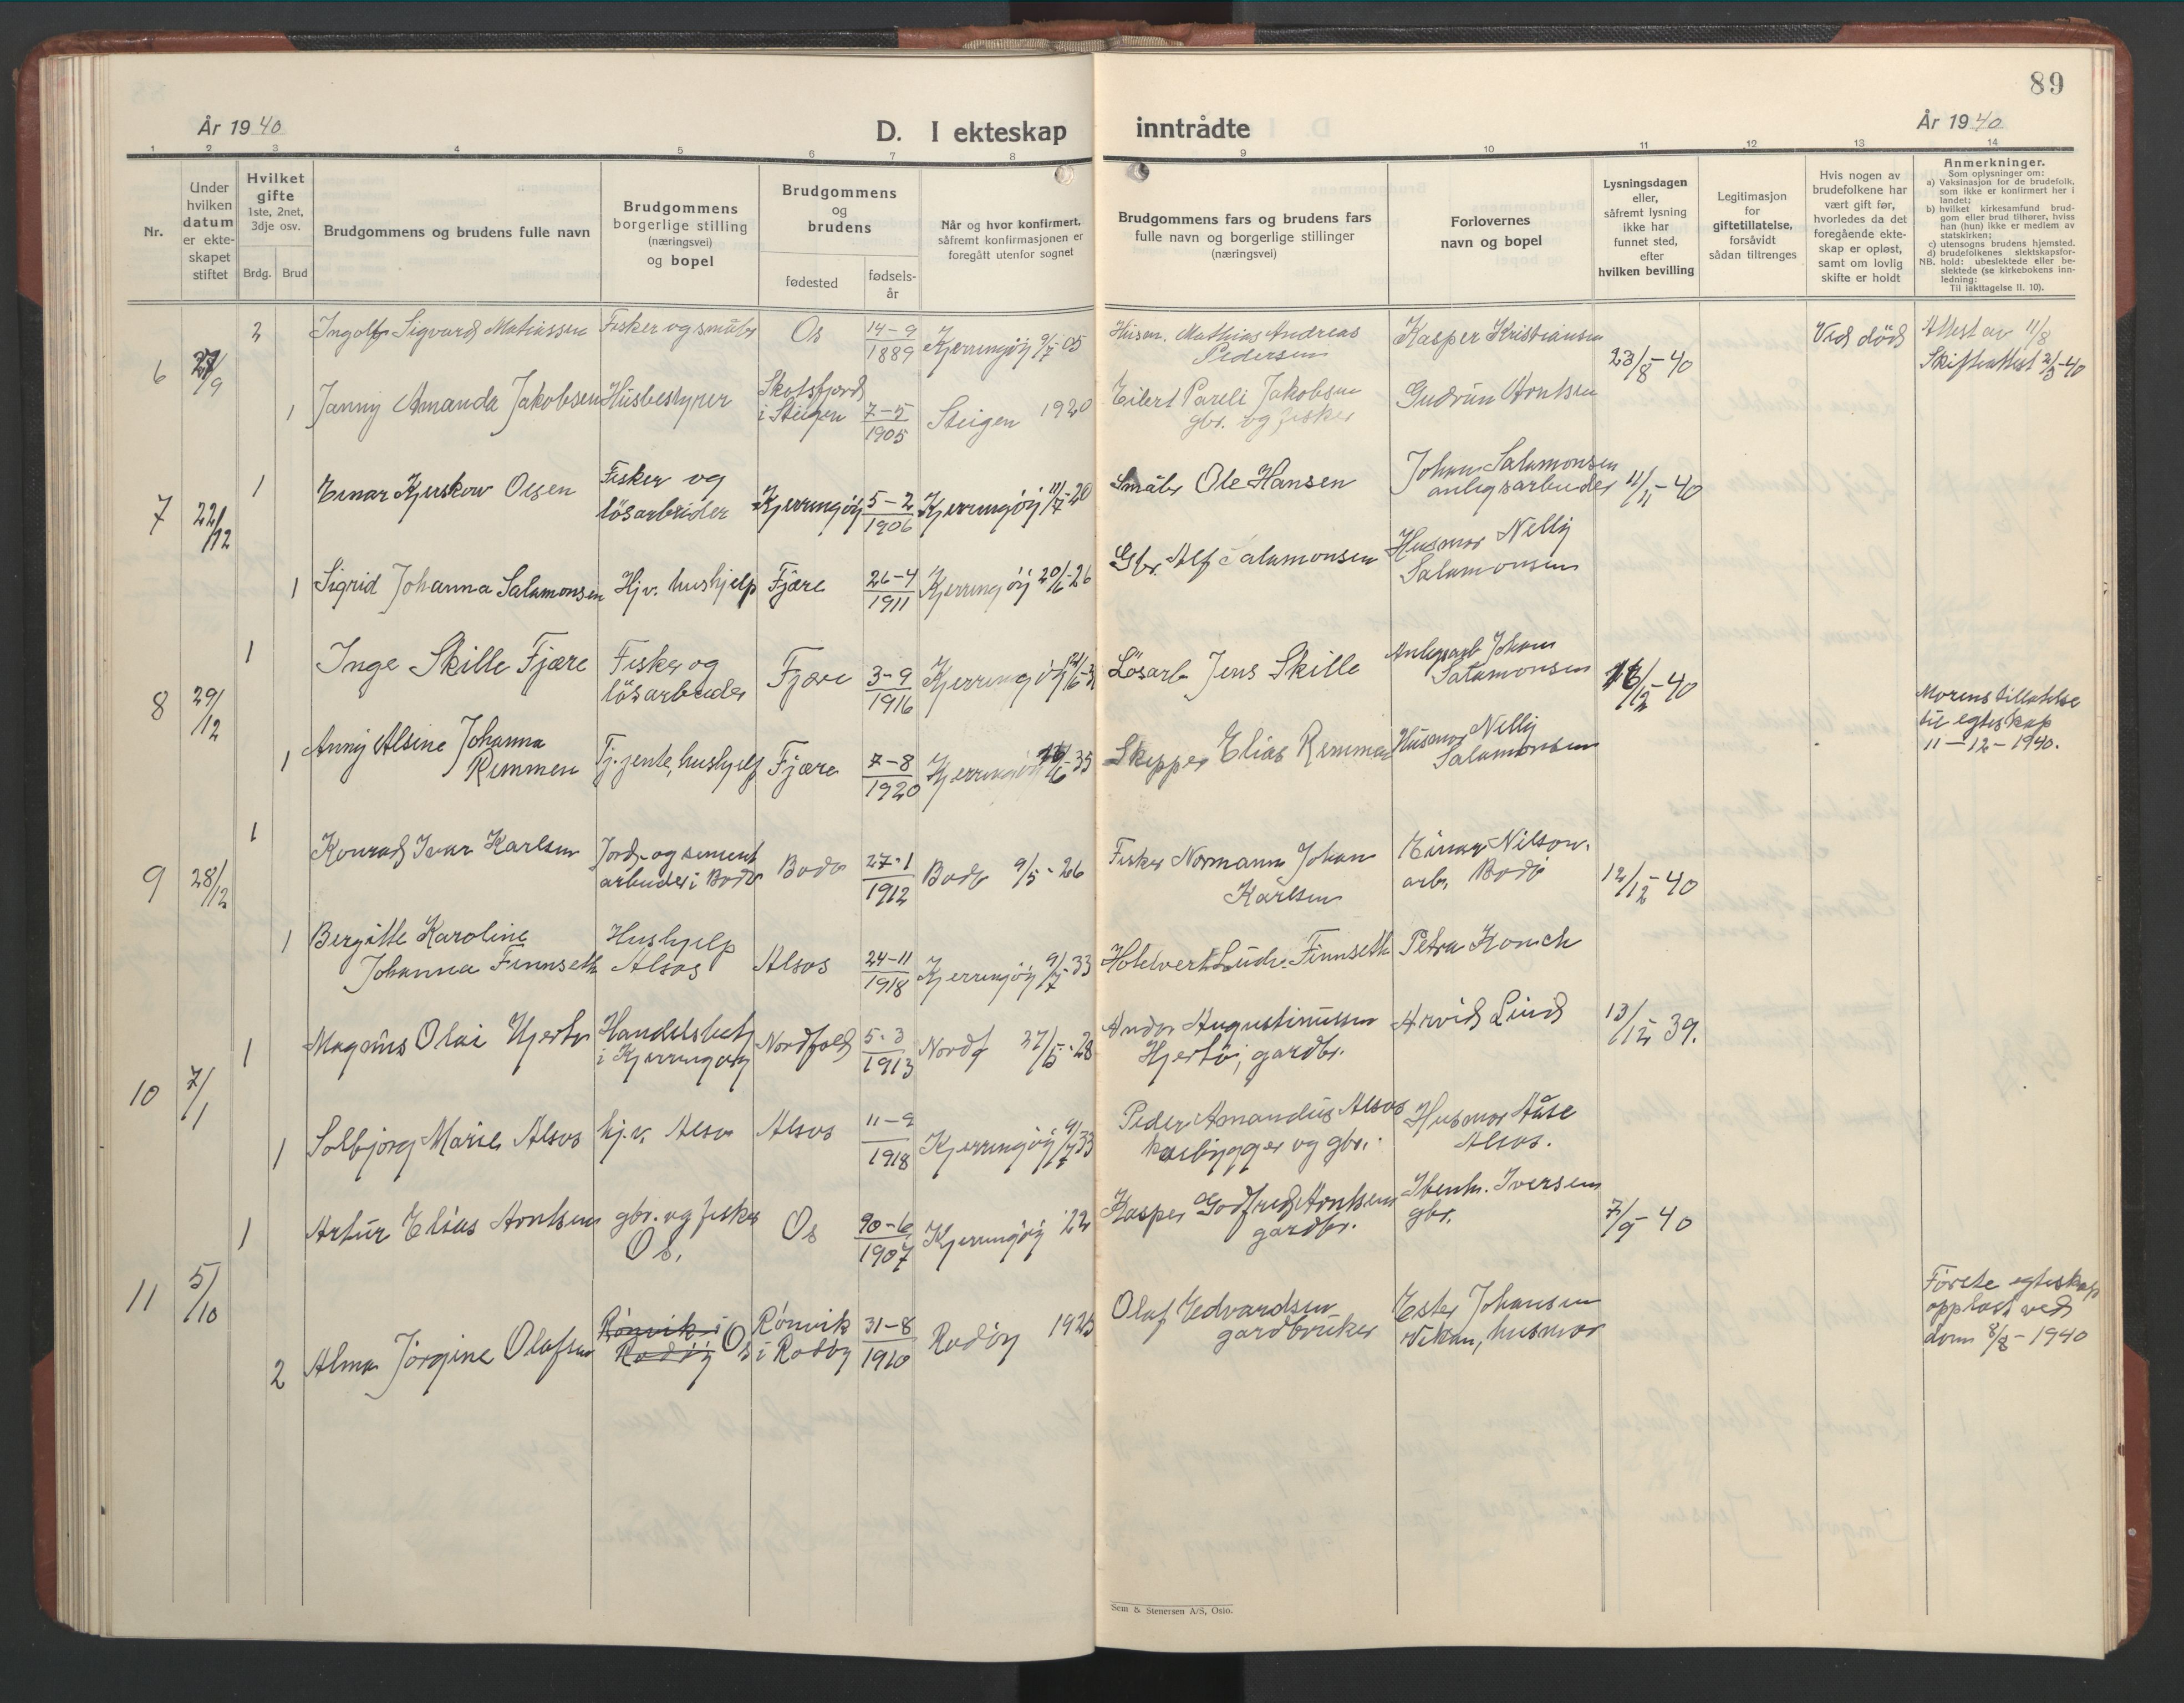 89
År 1940
D. I ekteskap inntrådte
År 1940
1 2 3 4 5 6 7 8 9 10 11 12 13 14
Nr.
Under
hvilken
datum
er ekte-
skapet
stiftet
Hvilket
gifte
1ste, 2net,
3dje osv.
Brdg. Brud
Brudgommens og brudens fulle navn
Brudgommens
borgerlige stilling
(næringsvei)
og bopel
Brudgommens
og
brudens
fødested
fødsels-
år
Når og hvor konfirmert,
såfremt konfirmasjonen er
foregått utenfor sognet
Brudgommens fars og brudens fars
fulle navn og borgerlige stillinger
(næringsvei)
Forlovernes
navn og bopel
Lysningsdagen
eller,
såfremt lysning
ikke har
funnet sted,
efter
hvilken bevilling
Legitimasjon
for
giftetillatelse,
forsåvidt
sådan tiltrenges
Hvis nogen av
brudefolkene har
vært gift før,
hvorledes da det
foregående ekte-
skap er opløst,
samt om lovlig
skifte er holdt
Anmerkninger.
Som oplysninger om:
a) Vaksinasjon for de brudefolk,
som ikke er konfirmert her i
landet;
b) hvilket kirkesamfund brud-
gom eller brud tilhører, hviss
han (hun) ikke er medlem av
statskirken;
c) utensogns brudens hjemsted.
d) brudefolkenes slektskapsfor-
hold: ubeslektede eller be-
slektede (se kirkebokens inn-
ledning:
NB.
Til iakttagelse II. 10).
6 27/9
2 Ingolf Sigvard Matiassen Fisker og småbr Os 14-9 1889 Kjerringöy 9/7-05 Mathias Andreas
Pedersen
Kasper Kristiansen 23/8-40 Ved död Attest av 11/8
Skifteattest 2/5-40
1 Janny Amanda Jakobsen Husbestyrer Skotsfjord
i Steigen 7-5 1905 Steigen 1920 Eilert Pareli Jakobsen
gbr. og fisker
Gudrun Arntsen
7 22/12
1 Einar Kjerskow Olsen Fisker og
lösarbeider Kjerringöy 5-2 1906 Kjerringöy 11/7-20 Småbr Ole Hansen Johan Salamonsen
anlegsarbeider 11/11-40
1 Sigrid Johanna Salamonsen Hjv. hushjelp Fjære 26-4 1911 Kjerringöy 20/6-26 Gbr. Alf Salamonsen Husmor Nelly
Salamonsen
8 29/12
1 Inge Skille Fjære Fisker og
lösarbeider Fjære 3-9 1916 Kjerringöy Lösarb Jens Skille Anlegsarb Johan
Salamonsen 16/12-40
Morens tillatelse
til egteskap
11-12-1940.
1 Anny Alsine Johanna
Remmen Tj. jente, hushjelp Fjære 7-8 1920 Kjerringöy 35 Skipper Elias Remmen Husmor Nelly
Salamonsen
9 28/12
1 Konrad Ivar Karlsen Jord- og sement
arbeider i Bodö Bodö 27-1 1912 Bodö 9/5-26 Fisker Normann Johan
Karlsen
Einar Nilson.
arb. Bodö 12/12-40
1 Bergitte Karoline
Johanna Finnseth Hushjelp
Alsos Alsos 24-11 1918 Kjerringöy 9/7-33 Ludv. Finnseth Petra
10 7/1
1 Magnus Olai Hjertö Handelsbetj
i Kjerringöy Nordfold 5-3 1913 Nordf 27/5-28 Augustinussen
Hjertö, gardbr.
Arvid Lind 13/12 39.
1 Solbjörg Marie Alsos hj.v. Alsos Alsos 11-9 1918 Kjerringöy 9/7 33 Peder Amandus Alsos
og gbr.
Husmor Aase
Alsos.
11 5/10
1 Artur Elias Arntsen gbr. og fisker
Os. Os 1907 Kjerringöy 22 Kasper Godfred Arntsen
gardbr.
Iversen
gbr. 7/9-40
2 Alma Jörgine Olafsen Rönvik i
Rödöy Os Rönvik
i Rödöy 31-8 1910 Rödöy 1925 Olaf Edvardsen
gardbruker
Ester Johansen
husmor
Förste egteskap
opplöst ved
dom 8/8-1940
Sem & Stenersen A/S, Oslo.